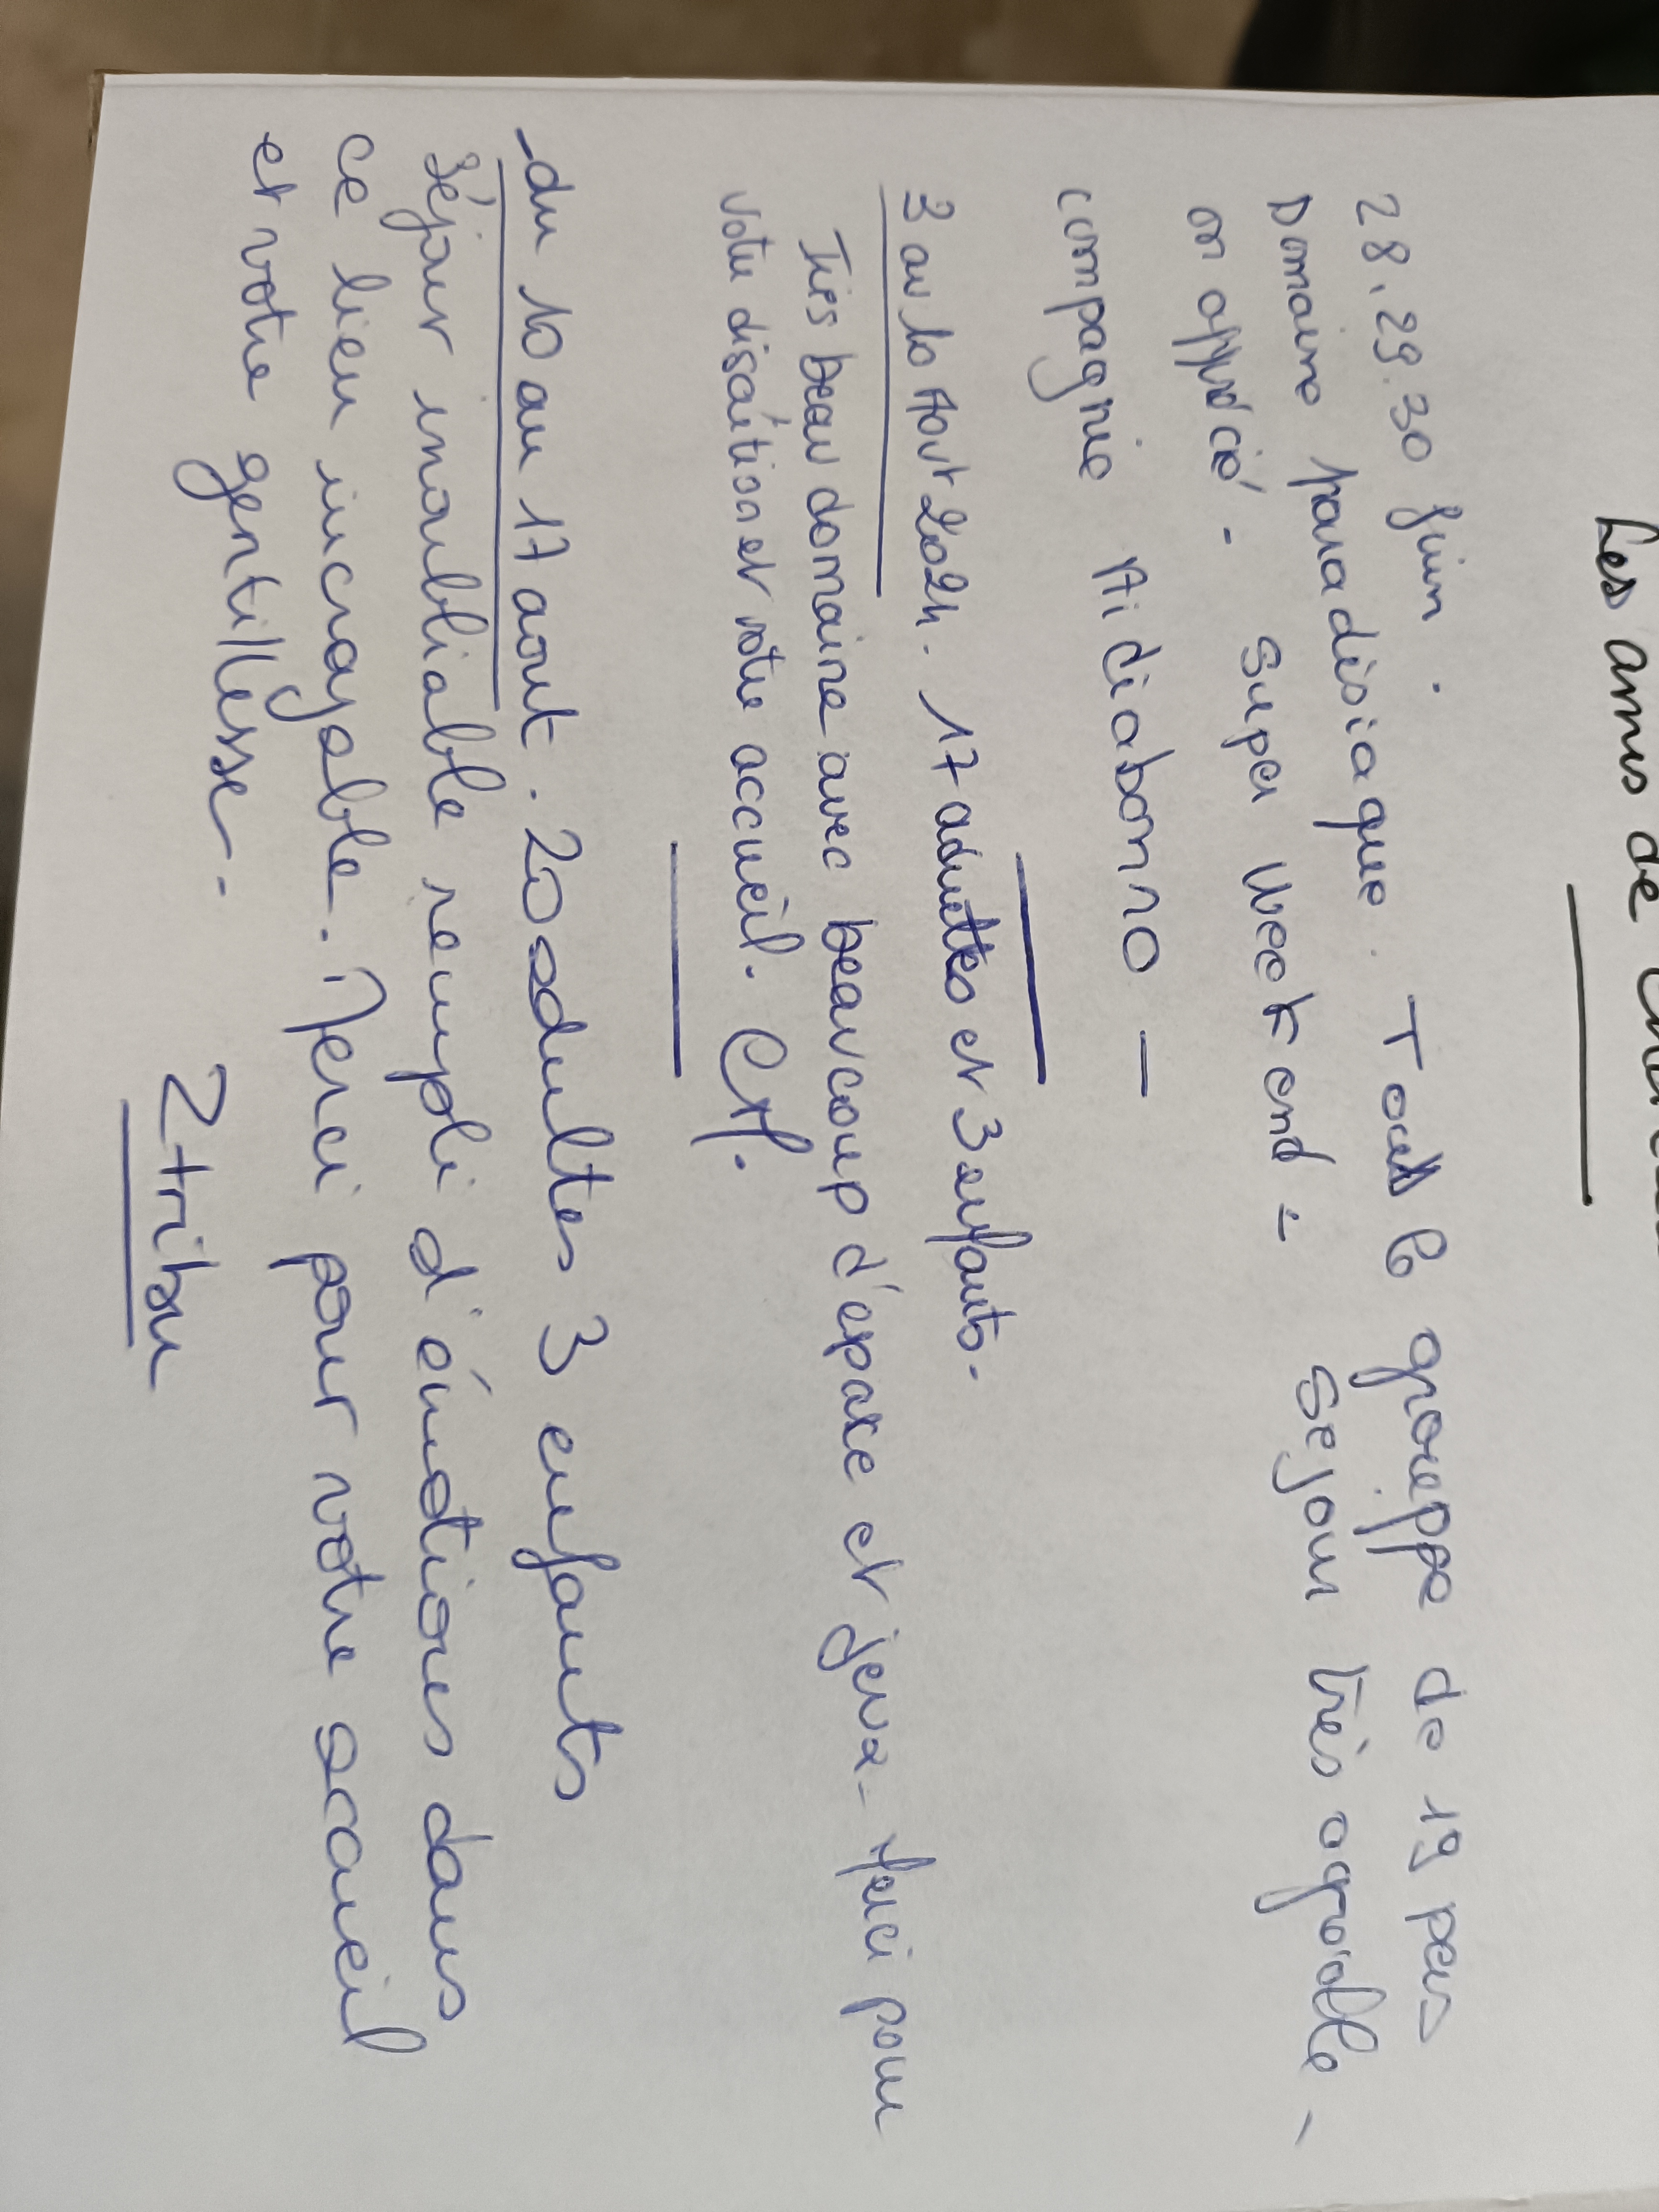 Les amis de
28.29.30 juin.
Domaine paradisiaque. Tout le groupe de 19 pers
on apprécié - Super Week end - Sejour très agréable -
compagnie Aidiabonno -
3 au 10 Aout 2024. 17 adultes et 3 enfants.
Très beau domaine avec beaucoup d'espace et jeux - Merci pour
votre discrétion et votre accueil.
- du 10 au 17 aout. 20 adultes 3 enfants
Séjour inoubliable rempli d'émotions dans
ce lieu incroyable. Merci pour votre accueil
et votre gentillesse.
2 tribu